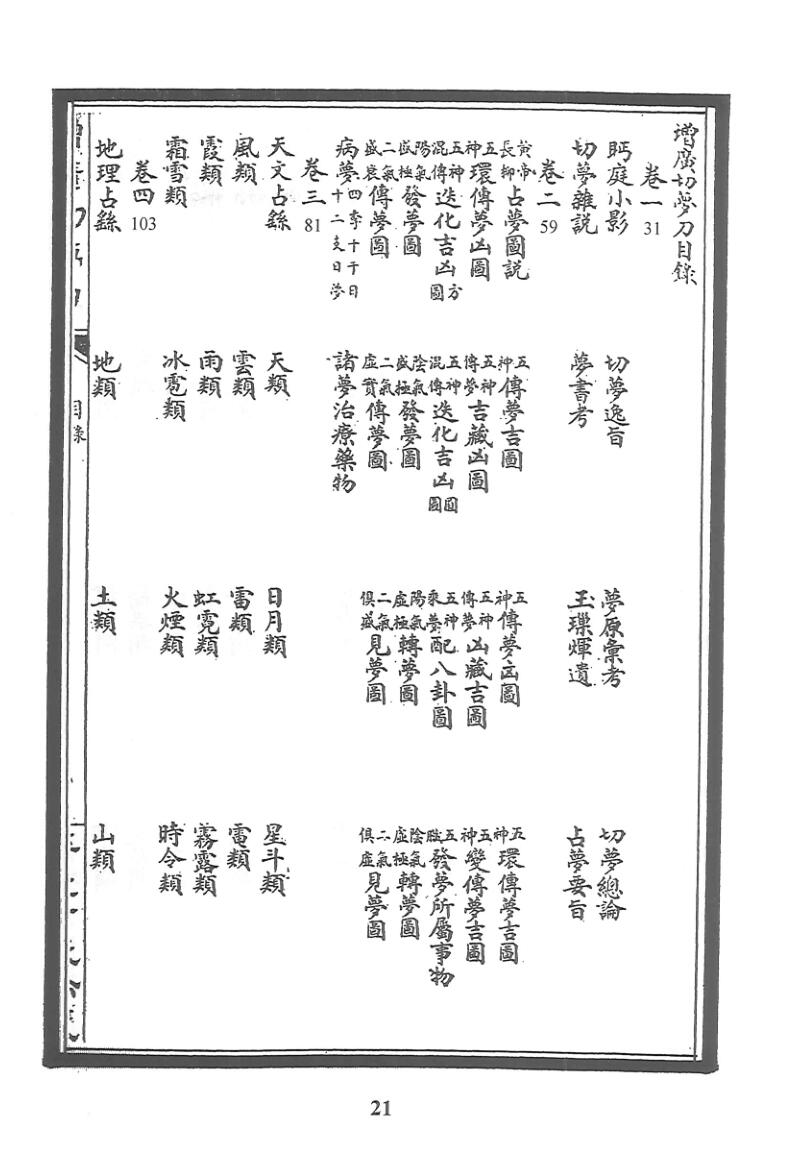 增廣切夢刀目錄
卷一 31
眄庭小影 切夢逸旨 夢原彙考 切夢總論
切夢雜說 夢書考 玉璅煇遺 占夢要旨
卷二 59
黃帝長柳占夢圖說 五神傳夢吉圖 五神傳夢凶圖 五神環傳夢吉圖
五神環傳夢凶圖 五神傳夢吉藏凶圖 五神傳夢凶藏吉圖 五神變傳夢吉圖
五神混傳迭化吉凶方圖 五神混傳迭化吉凶圓圖 五神乘夢配八卦圖 五臟發夢所屬事物
陽氣盛極發夢圖 陰氣盛極發夢圖 陽氣虛極轉夢圖 陰氣虛極轉夢圖
二氣盛衰傳夢圖 二氣虛實傳夢圖 二氣俱盛見夢圖 二氣俱虛見夢圖
病夢四季十干日十二支日夢 諸夢治療藥物
卷三 81
天文占繇 天類 日月類 星斗類
風類 雲類 雷類 電類
霞類 雨類 虹霓類 霧露類
霜雪類 冰雹類 火煙類 時令類
卷四 103
地理占繇 地類 土類 山類
目錄
21